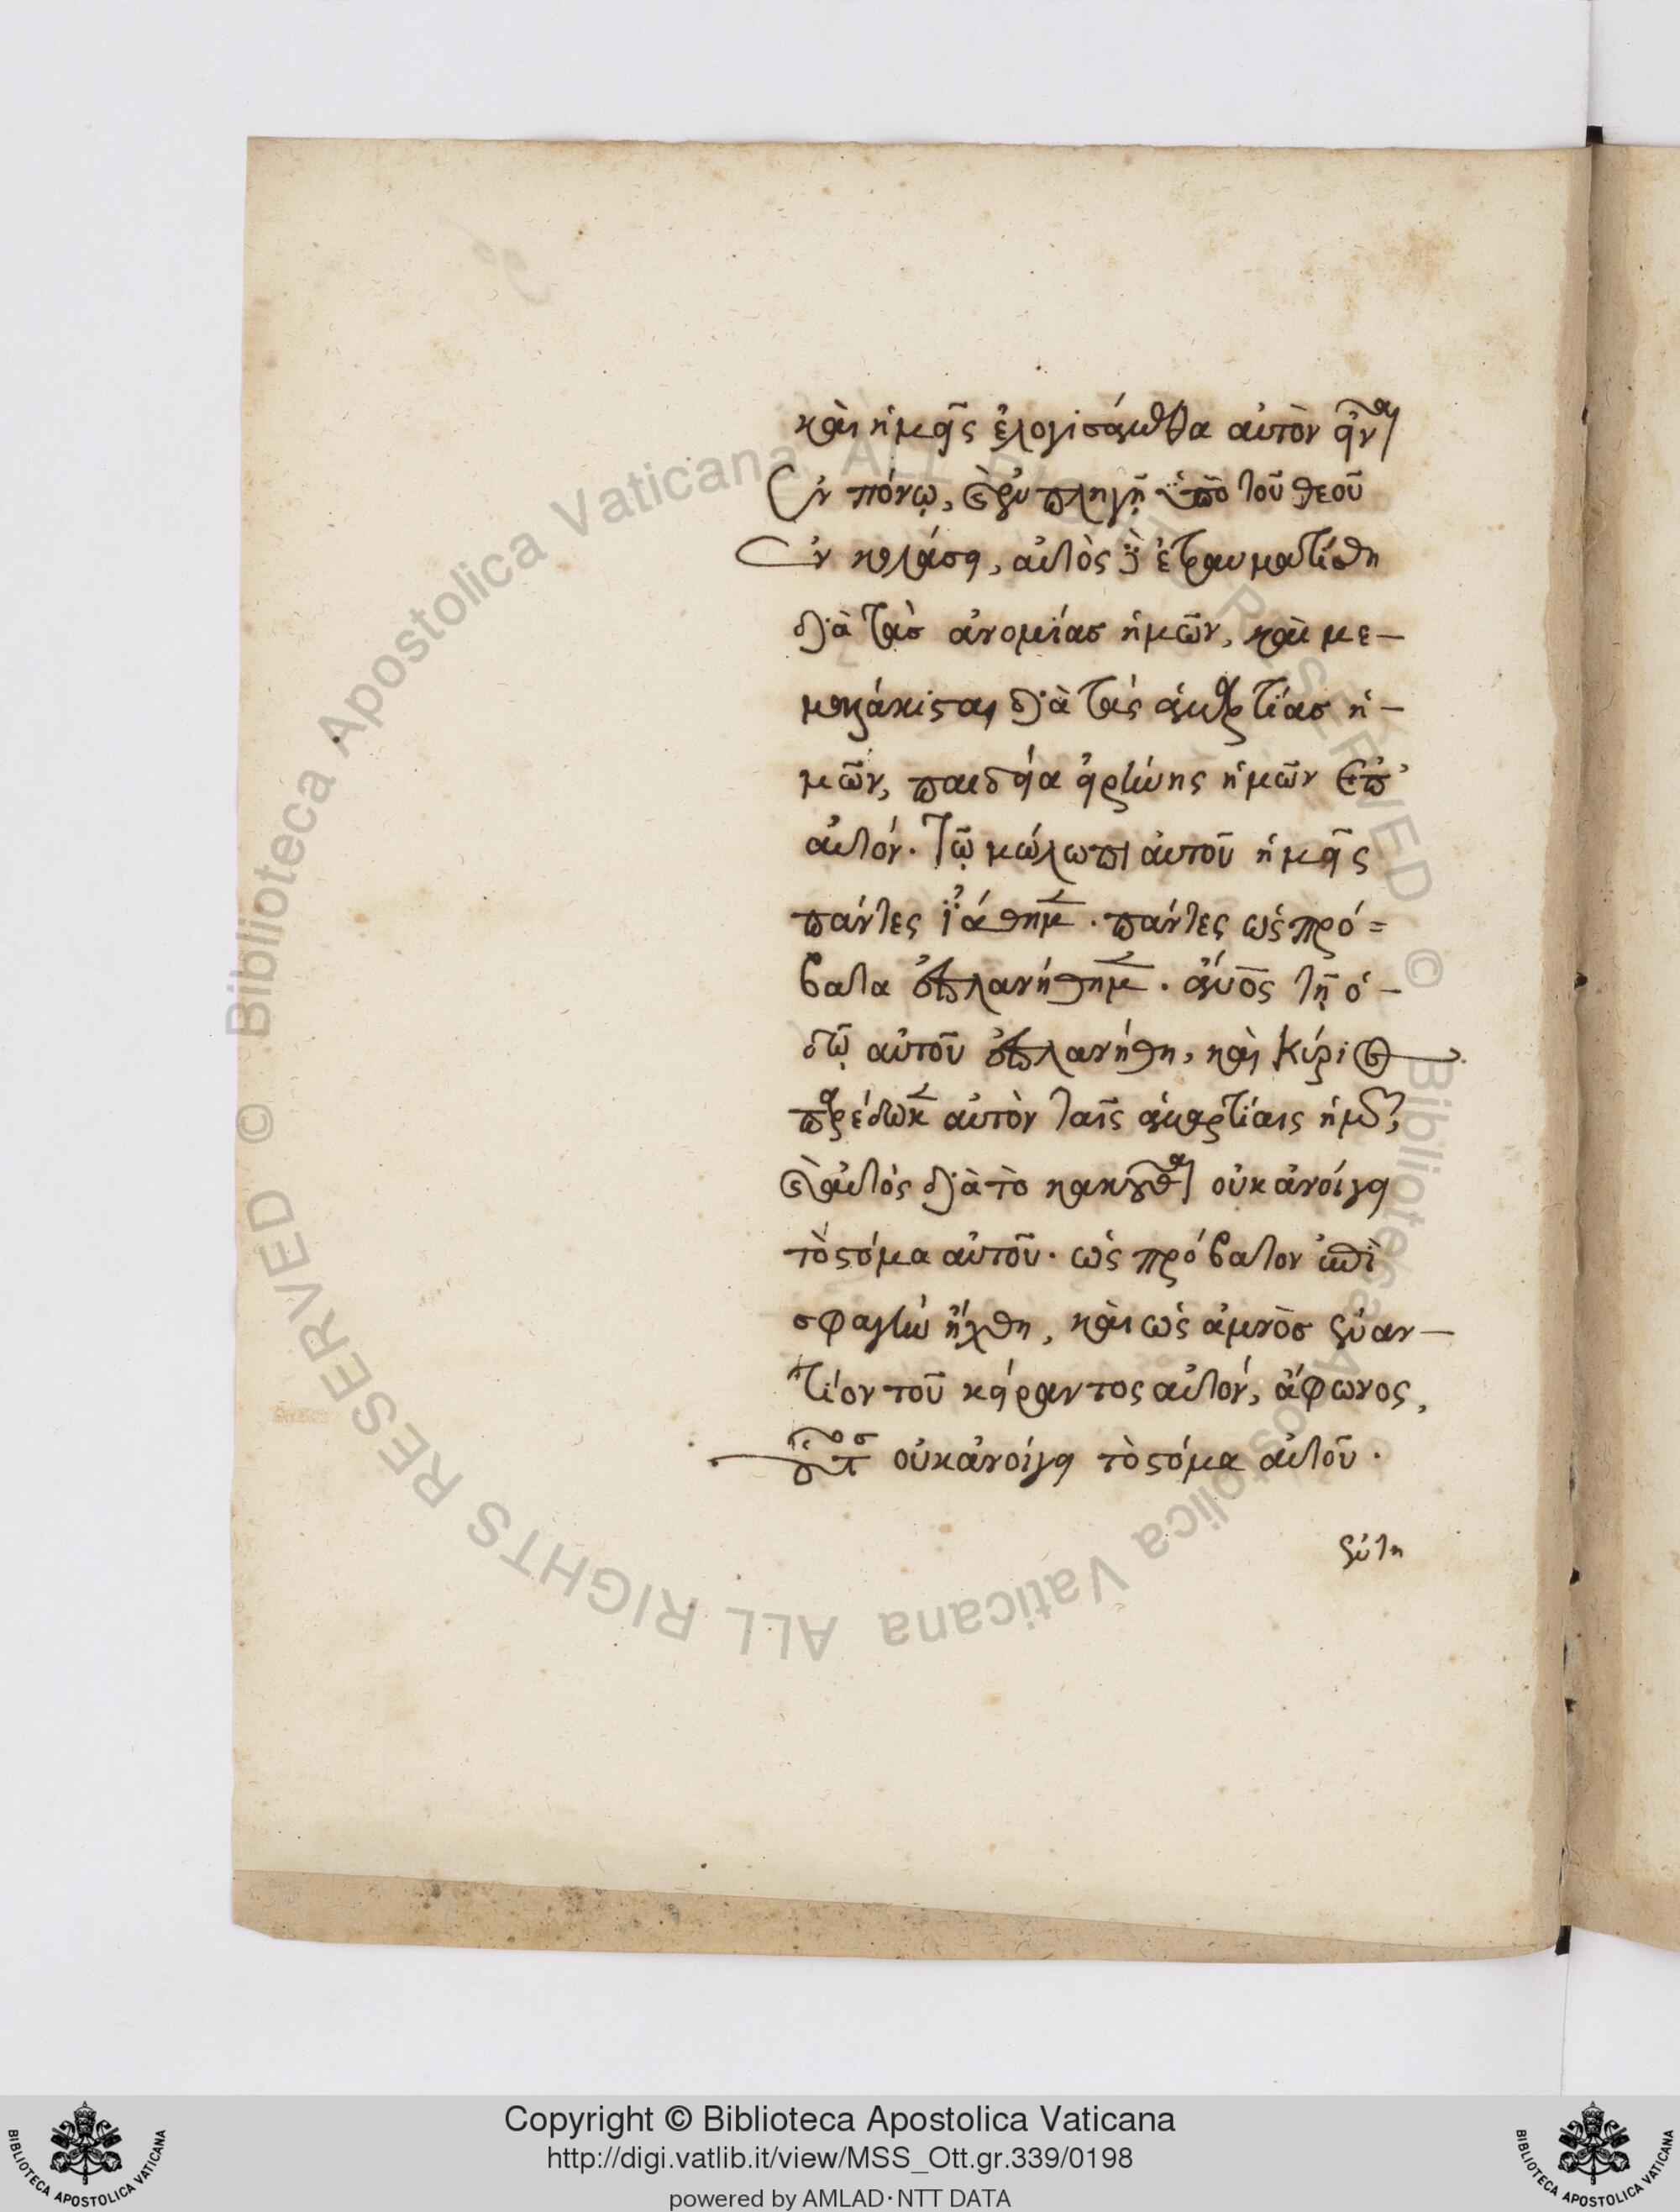 καὶ ἡμεῖς ἐλογισάμεθα αὐτὸν εἶναι
ἐν πόνῳ, καὶ ἐν πληγῇ ὑπὸ τοῦ θεοῦ
ἐν κολάσει, αὐτὸς δὲ ἐτραυματίσθη
διὰ τὰσ ἀνομίασ ἡμῶν, καὶ με-
μαλάκισται διὰ τὰς ἁμαρτίασ ἡ-
μῶν, παιδεία εἰρήνης ἡμῶν ἐπ'
αὐτόν. τῷ μώλωπι αὐτοῦ ἡμεῖς
πάντες ἰάθημεν. πάντες ὡς πρό=
βατα ἐπλανήθημεν. ἄνος τῇ ὁ-
δῷ αὐτοῦ ἐπλανήθη, καὶ κύριος
παρέδωκεν αὐτὸν ταῖς ἁμαρτίαις ἡμῶν,
καὶ αὐτὸς διὰ τὸ κεκακῶσθαι οὐκ ἀνοίγει
τὸ στόμα αὐτοῦ. ὡς πρόβατον ἐπὶ
σφαγὴν ἤχθη, καὶ ὡς ἀμνὸσ ἐναν-
τίον τοῦ κείραντος αὐτόν, ἄφωνος,
οὕτως οὐκ ἀνοίγει τὸ στόμα αὐτοῦ.
ἐν τῇ
Copyright © Biblioteca Apostolica Vaticana
http://digi.vatlib.it/view/MSS_Ott.gr.339/0198
powered by AMLAD·NTT DATA
BIBLIOTECA APOSTOLICA VATICANA
BIBLIOTECA APOSTOLICA VATICANA
© Biblioteca Apostolica Vaticana ALL RIGHTS RESERVED © Biblioteca Apostolica Vaticana ALL RIGHTS RESERVED